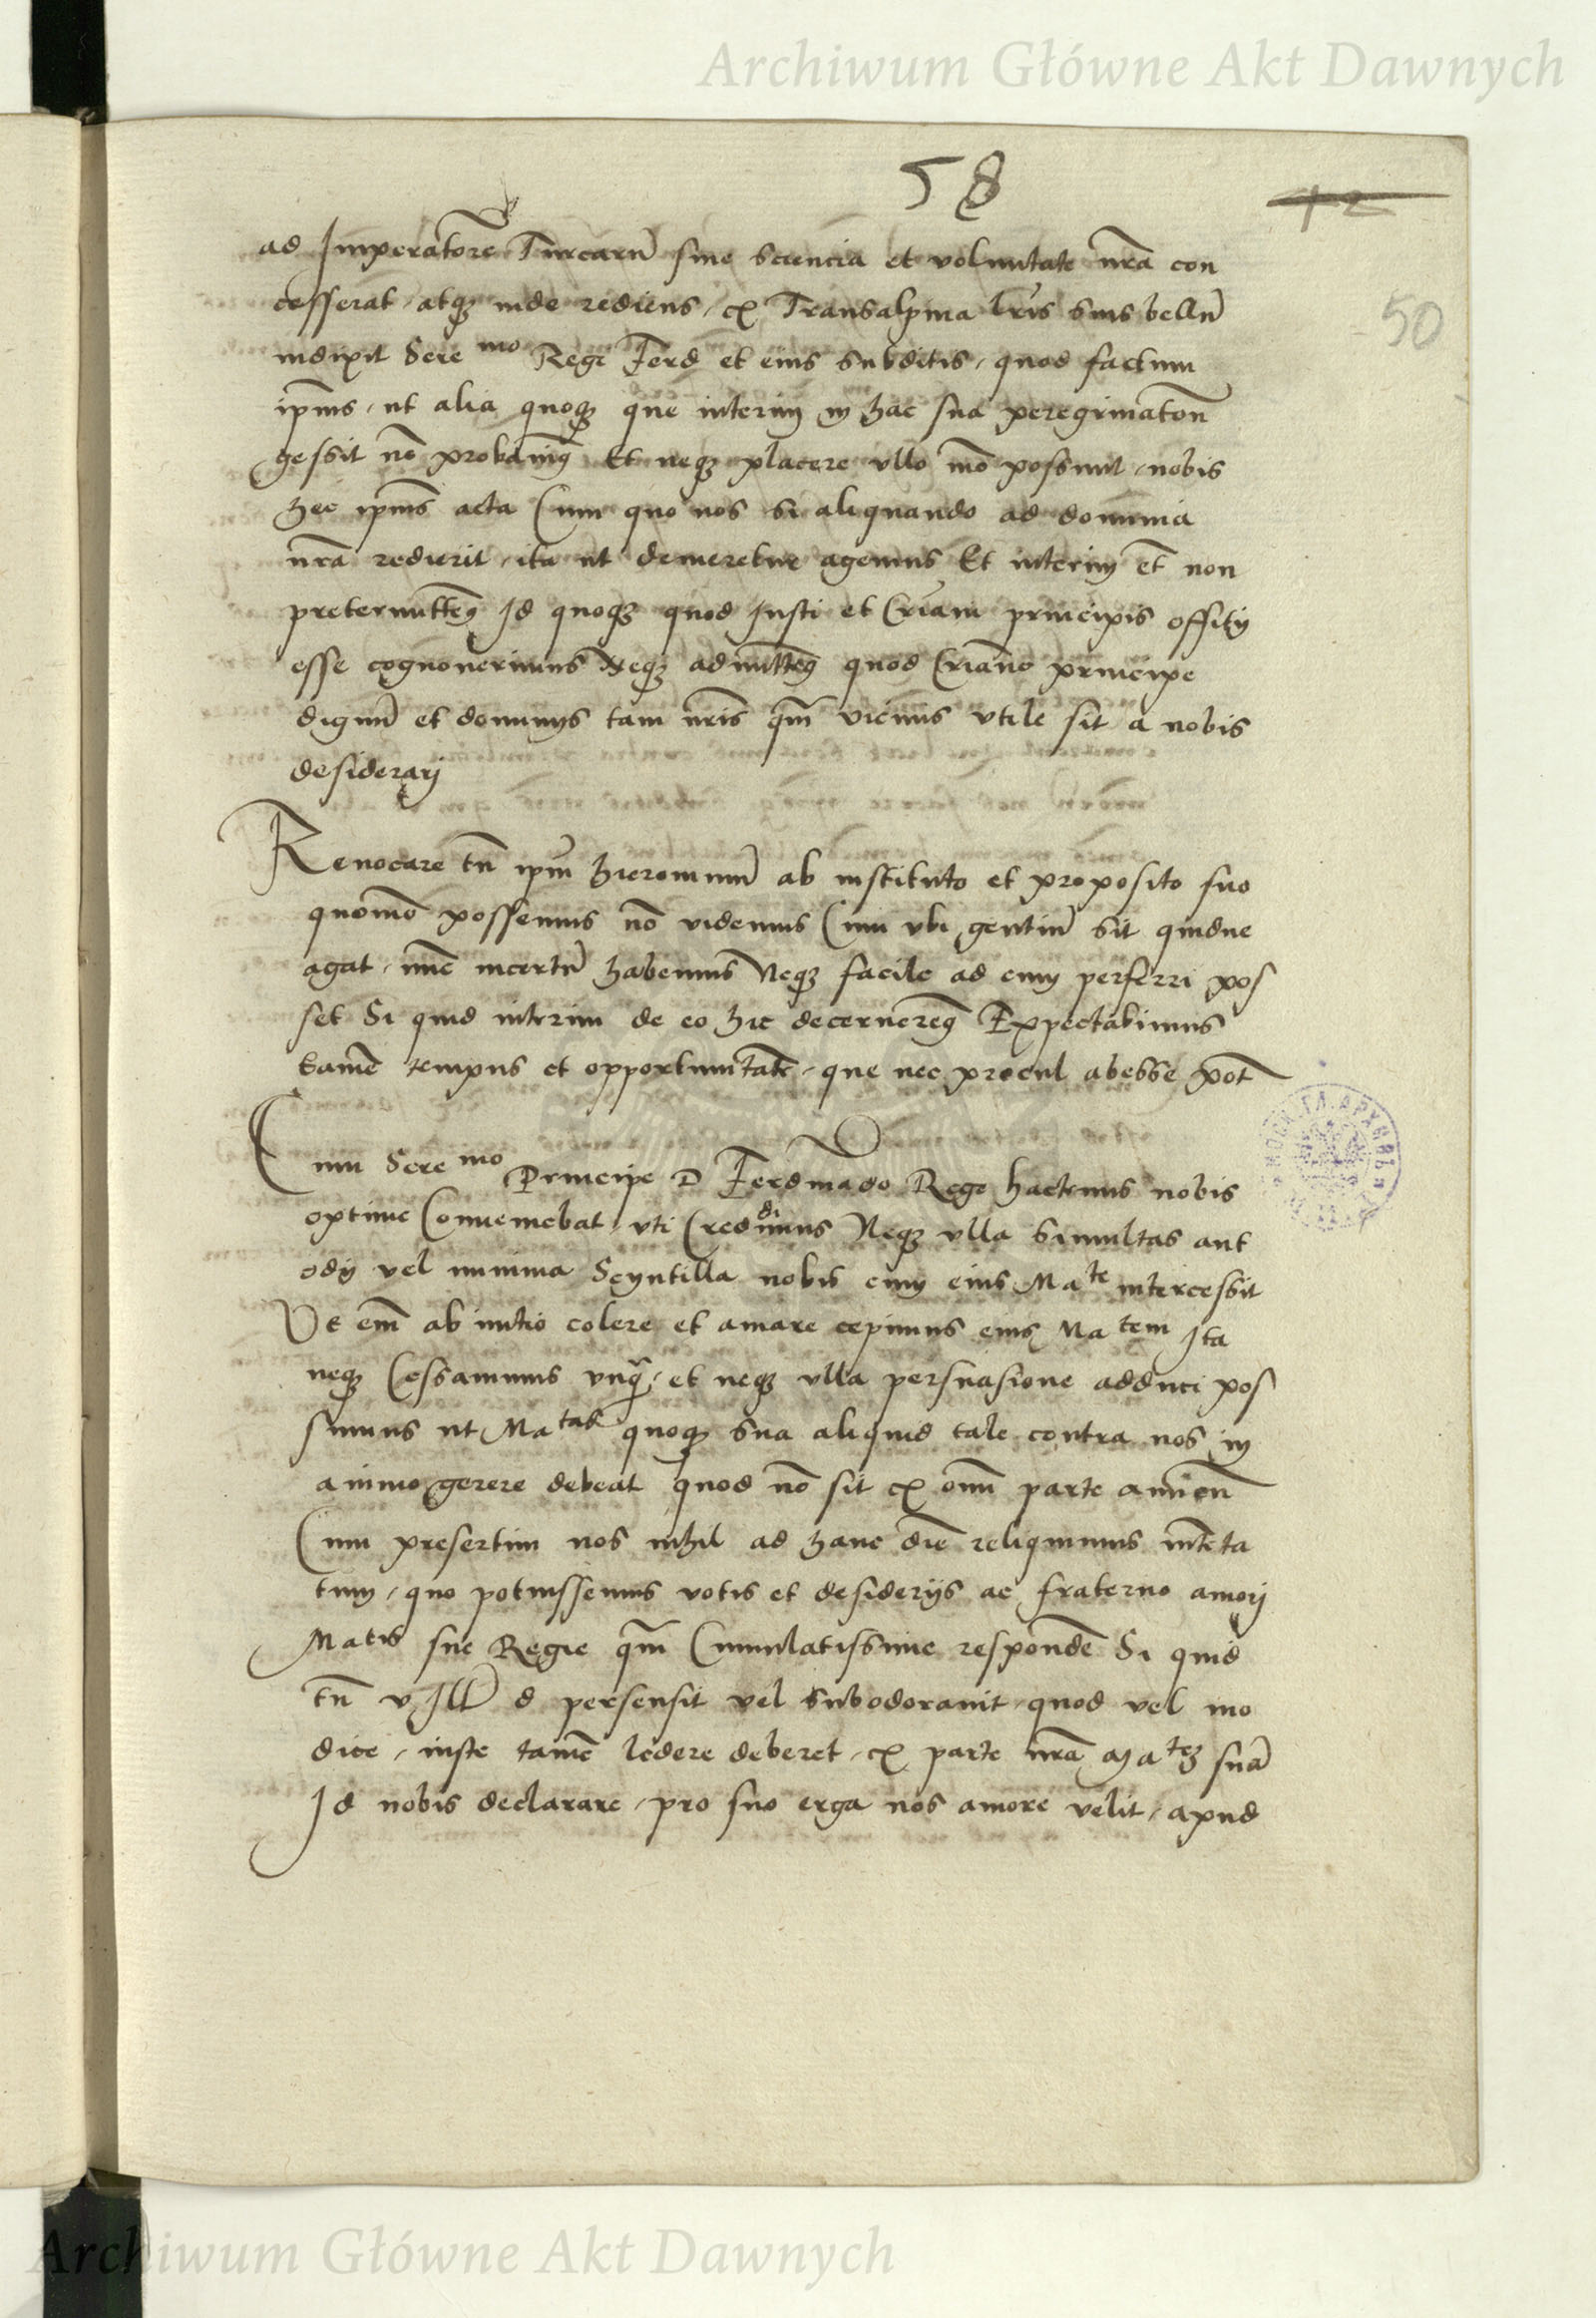 Archiwum Główne Akt Dawnych
58
50
ad Imperatorē Turcarū sine sciencia et voluntate nrā con
cesserat, atq3 inde rediens, ex Transalpina lrīs suis bellū
indixit Sere mo Regi Ferd et eius subditis, quod factum
ipīus, ut alia quoq3 que interim in hac sua peregrinatōn
gessit nō probamꝰ Et neq3 placere ullo mō possunt, nobis
hec ipīus acta Cum quo nos si aliquando ad dominia
nrā redierit, ita ut demeretur agemus Et interim et̄ non
pretermittemꝰ Id quoq3 quod Iusti et Cr̄iani principis offitij
esse cognouerimus Neq3 admittemꝰ quod Cr̄iano principe
dignū et dominijs tam nrīs qm̄ vicinis vtile sit a nobis
desiderarj
Reuocare tn̄ ipm̄ Hieronimū ab instituto et proposito suo
quomō possemus nō videmus Cum vbi gentiū sit quidue
agat, nūc incertū habemus Neq3 facile ad eum perferri pos
set Si quid interim de eo hic decerneremꝰ Expectabimus
tamē tempus et opportunitatē, que nec procul abesse pot̄
Cum Sere mo Principe D Ferdinādo Rege hactenus nobis
optime Conueniebat, vti Credidimus Neq3 ulla simultas aut
odij vel minima Scyntilla nobis cum eius Ma te intercessit
Vt em̄ ab initio colere et amare cepimus eius Ma tem Ita
neq3 Cessauimus vnq̄, et neq3 ulla persuasione adduci pos
sumus ut Ma tas quoq3 sua aliquid tale contra nos in
animo gerere debeat quod nō sit ex omī parte amicū
Cum presertim nos nihil ad hanc diē reliquimus intēta
tum, quo potuissemus votis et desiderijs ac fraterno amorj
Ma tis sue Regie qm̄ Cumulatissime respondē Si quid
tn̄ v Ill d persensit vel subodorauit, quod vel mo
dice, iuste tamē ledere deberet, ex parte nrā Ma te3 suā
Id nobis declarare, pro suo erga nos amore velit, apud
Archiwum Główne Akt Dawnych